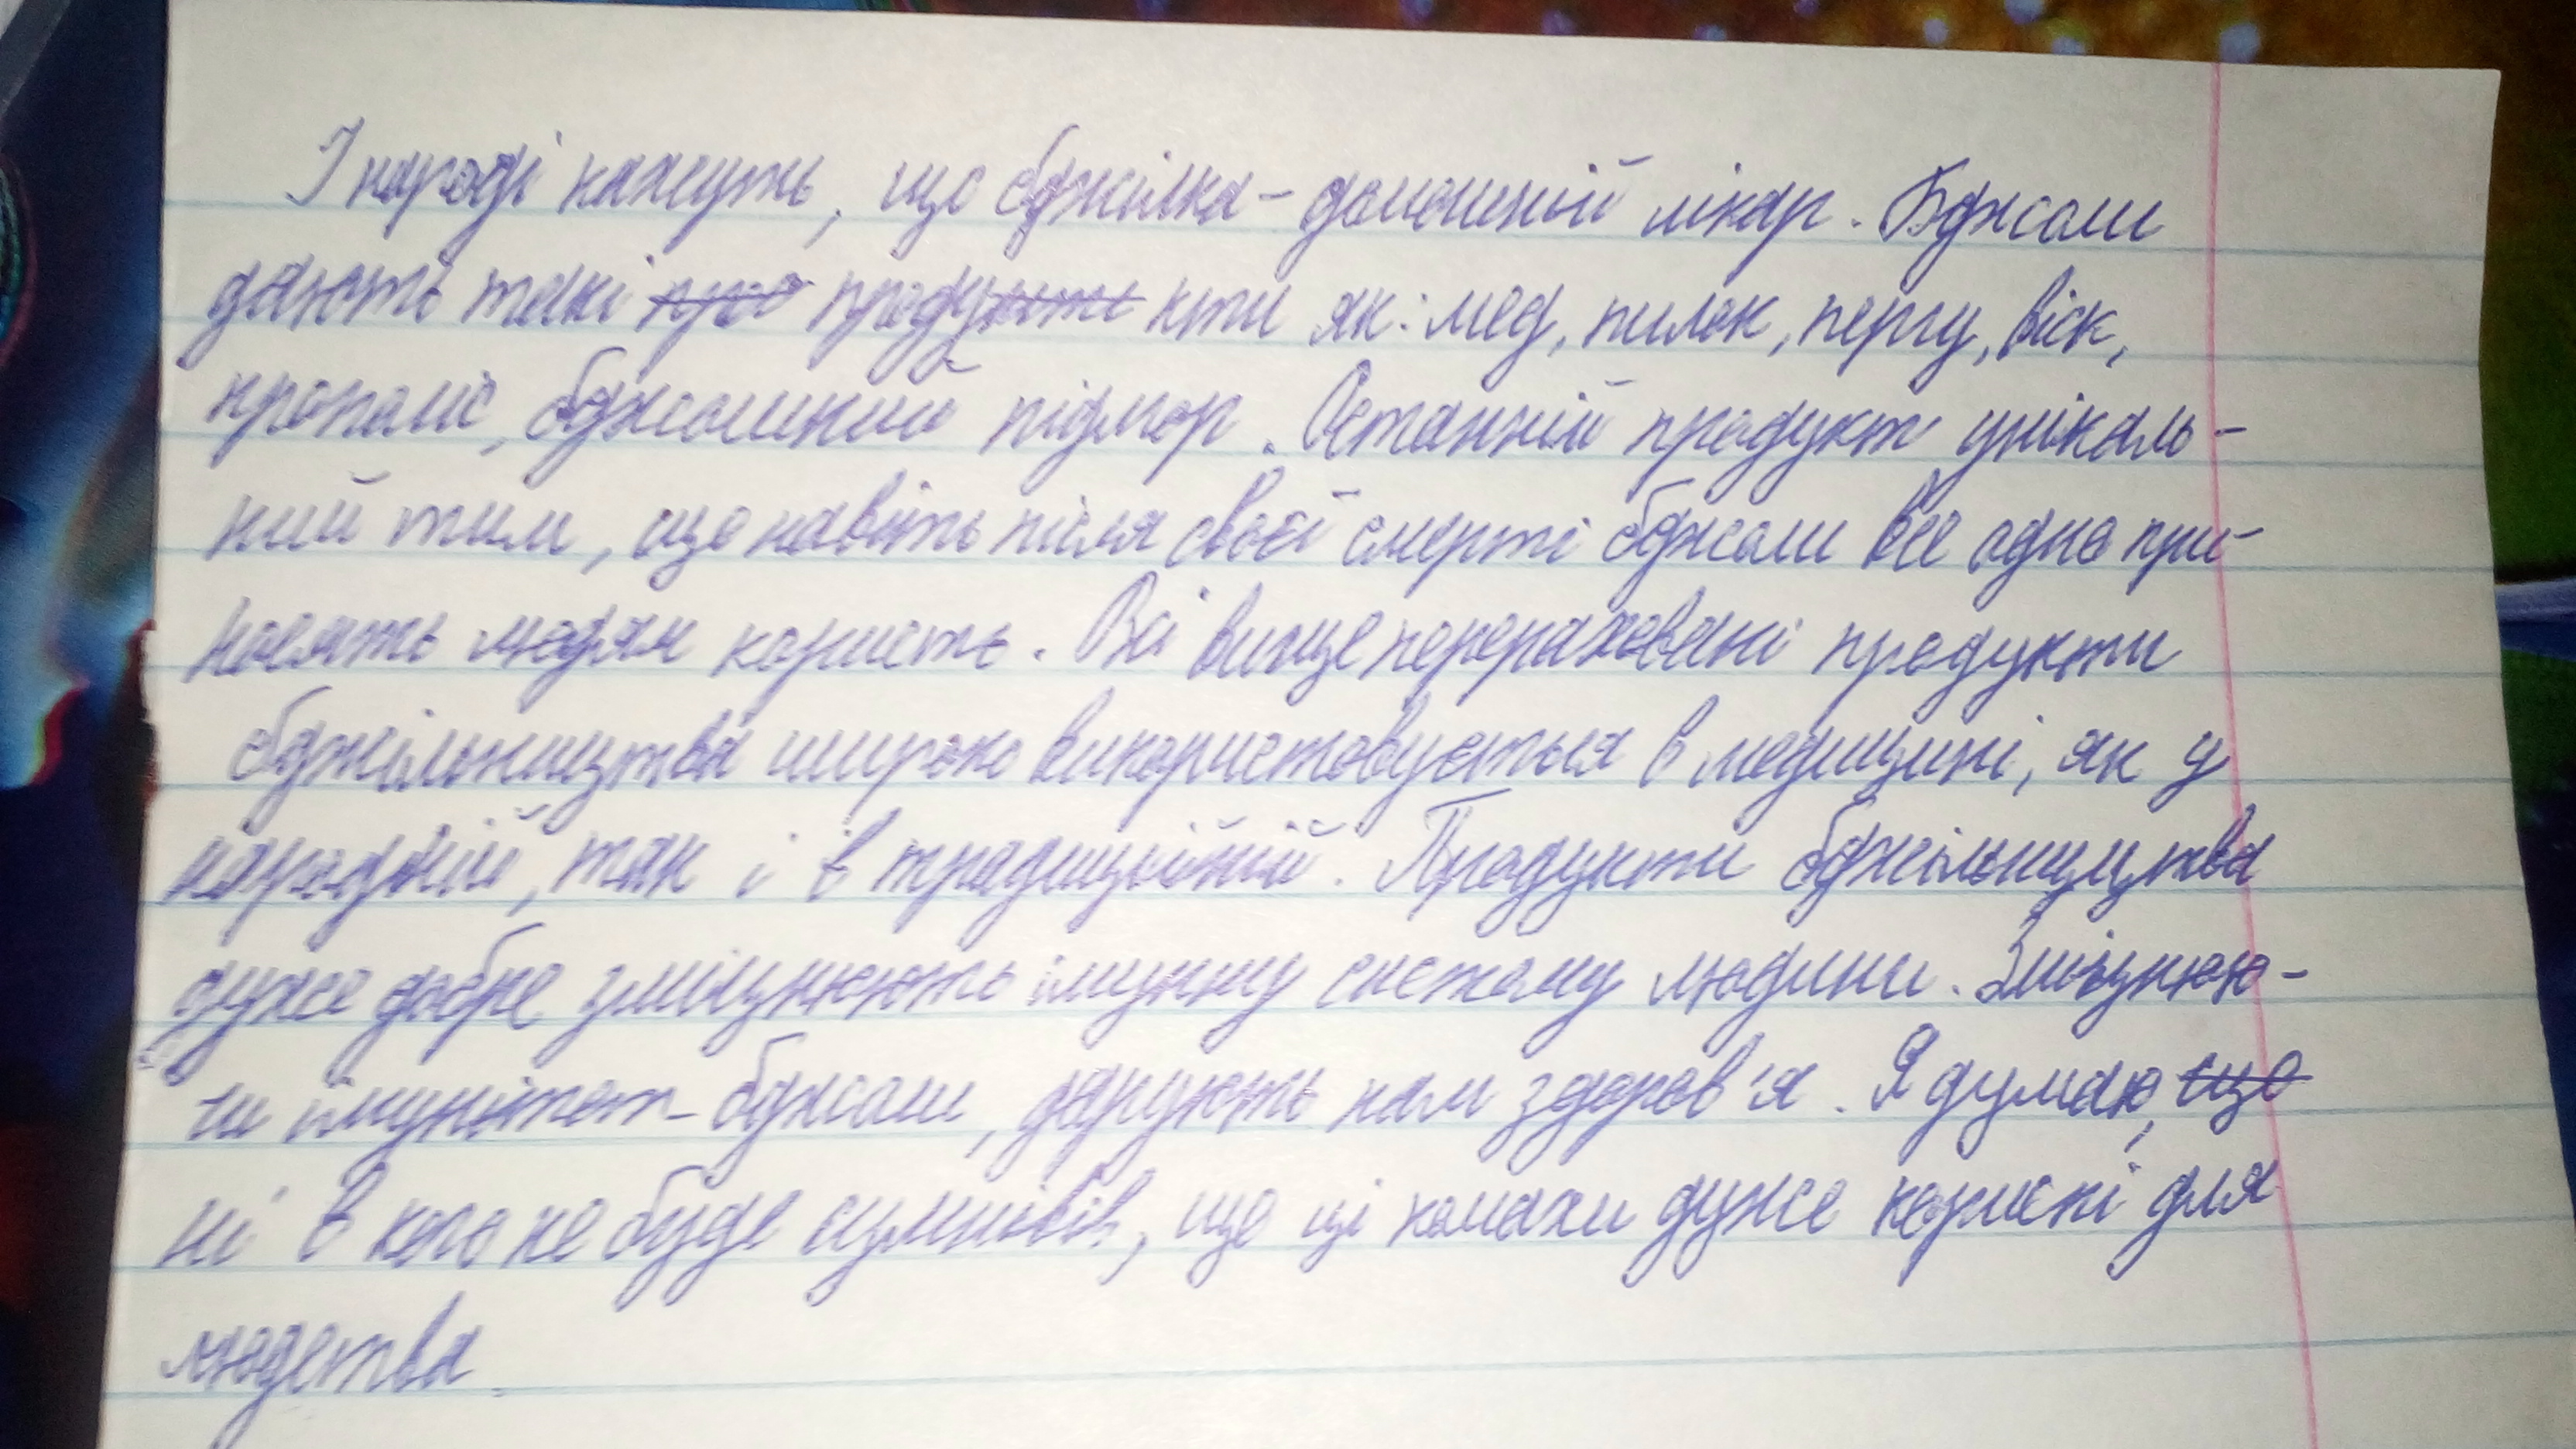 У народі кажуть, що бджілка - домашній лікар. Бджоли
дають такі про продукти кти як: мед, пилок, пергу, віск,
прополіс, бджолиний підмор. Останній продукт унікаль-
ний тим, що навіть після своєї смерті бджоли все одно при-
носять людям користь. Всі вище перераховані продукти
бджільництва широко використовується в медицині, як у
народній, так і в традиційній. Продукти бджільництва
дуже добре зміцнюють імунну систему людини. Зміцнюю-
чи імунітет - бджоли, дарують нам здоров'я. Я думаю, що
ні в кого не буде сумнівів, що ці комахи дуже корисні для
людства.